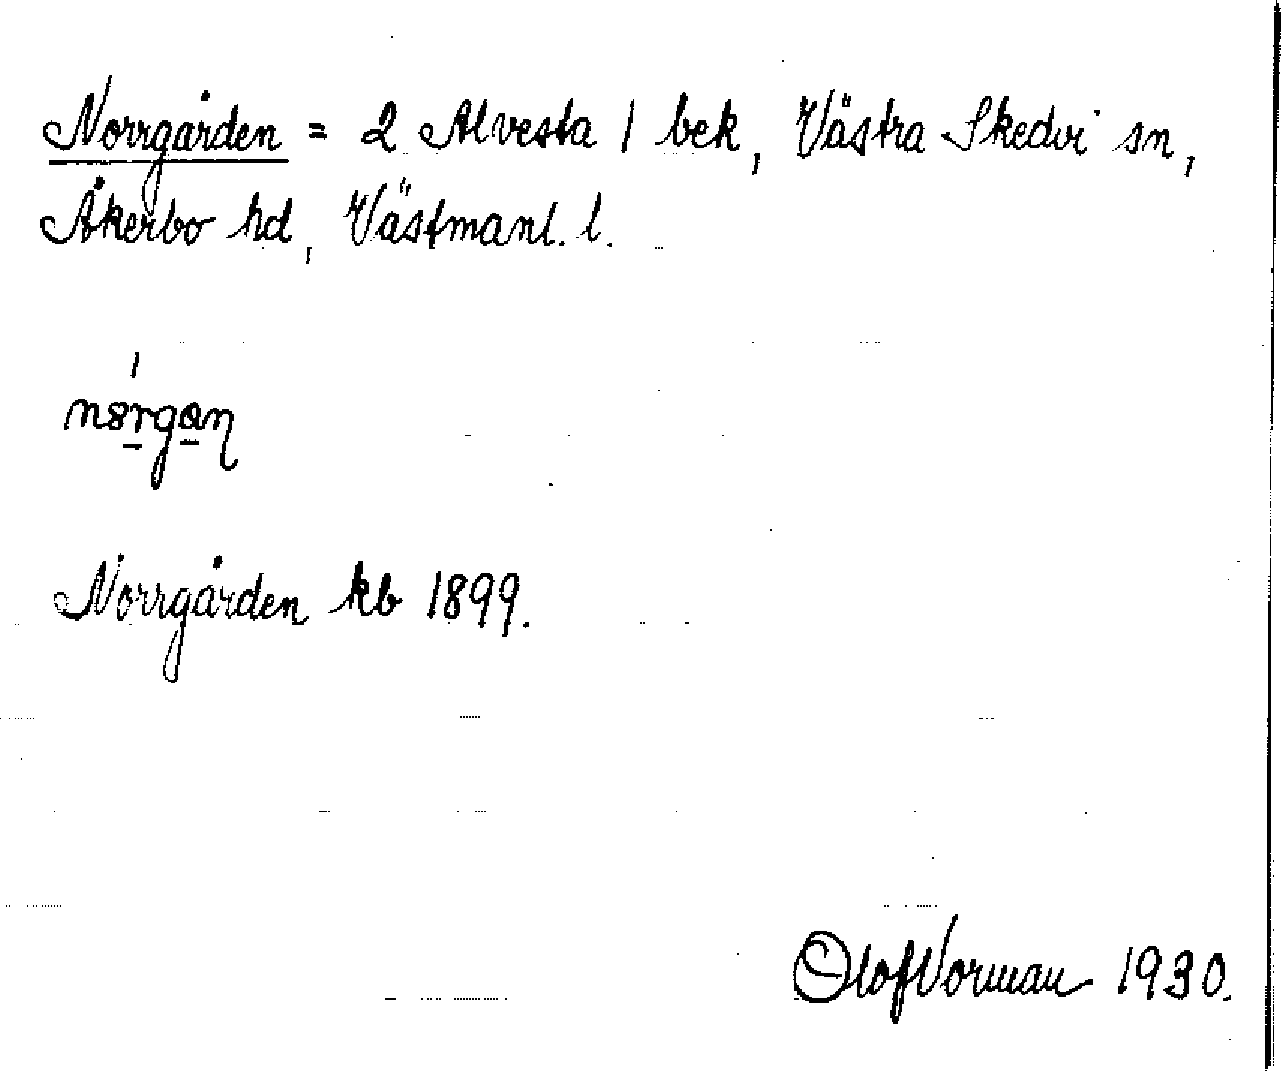 Norrgården = 2 Alvesta 1 bek, Västra Skedvi sn,
Åkerbo hd, Västmanl. l.
Norrgården kb 1899.
Olof Norman 1930.